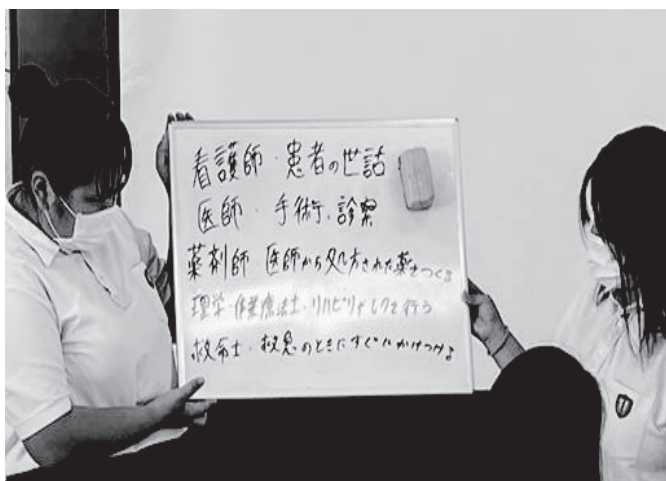 看護師・患者の世話
医師・手術、診察
薬剤師・医師から処方された薬をつくる
理学・作業療法士・リハビリや
救命士・救急のときにすぐにかけつける